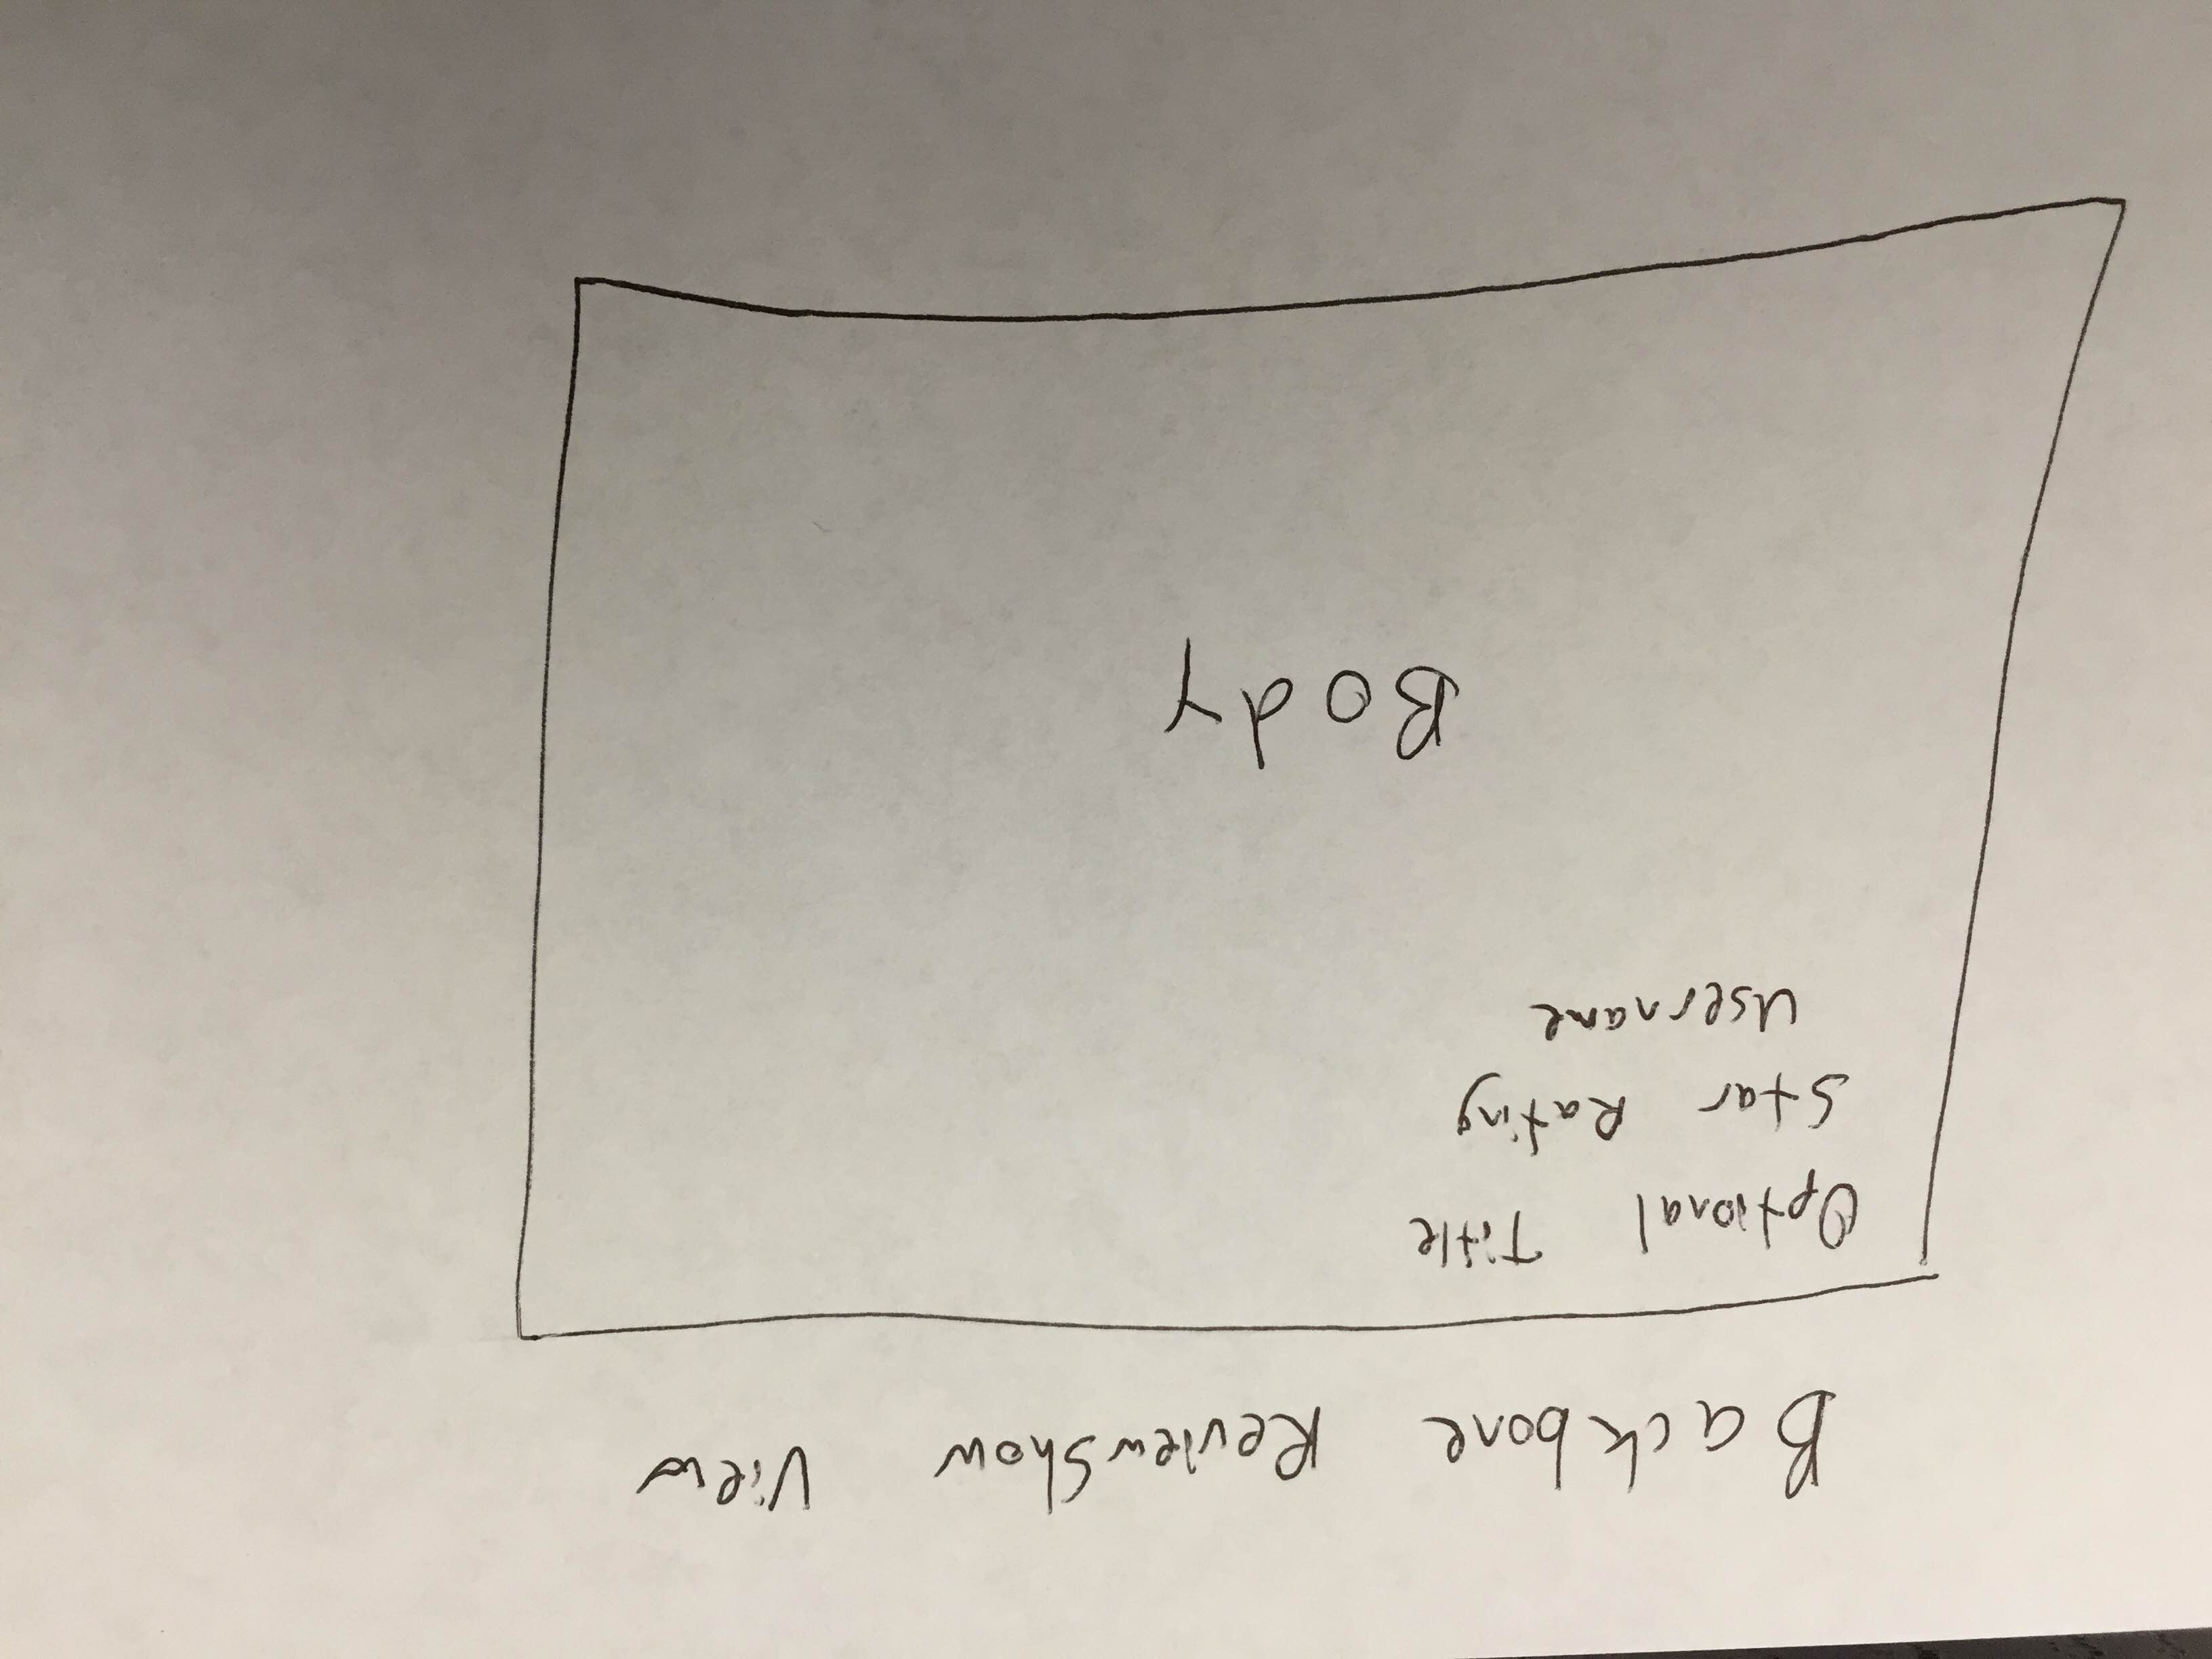 Backbone ReviewShow View
Optional Title
Star Rating
Username
Body